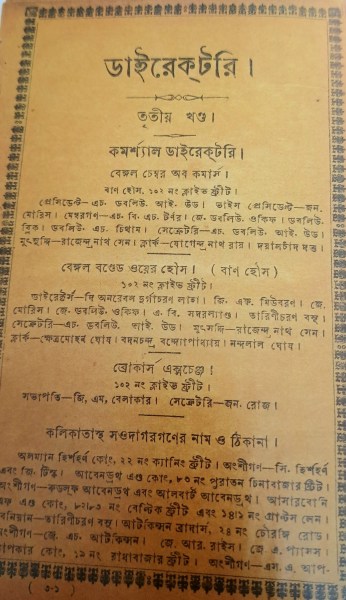 ডাইরেক্টরি।
তৃতীয় খণ্ড।
কমর্শ্যাল ডাইরেক্টরি।
বেঙ্গল চেম্বর অব কমার্স।
বাণ হৌস, ১০২ নং ক্লাইভ ষ্ট্রীট।
প্রেসিডেন্ট—এচ. ডবলিউ. আই. উড। ভাইস প্রেসিডেন্ট—জন.
মোরিস। মেম্বরগণ—এচ. বি. এচ. টর্ণর। জে. ডবলিউ. ওকিফ। ডবলিউ.
ব্লিক। ডবলিউ. এচ. চিথাম। সেক্রেটরি—এচ. ডবলিউ. আই. উড।
মুৎসুদ্দি—রাজেন্দ্র নাথ সেন। ক্লার্ক—যোগেন্দ্র নাথ রায়। দয়ালচাঁদ দত্ত।
বেঙ্গল বণ্ডেড ওয়ের হৌস। (বাণ হৌস)
১০২ নং ক্লাইভ ষ্ট্রীট।
ডাইরেক্টর্স—দি অনরেবল দুর্গাচরণ লাহা। জি. এফ. মিউবরণ। জে.
মোরিস। জে. ডবলিউ. ওকিফ। এ. বি. সদরল্যাণ্ড। তারিণীচরণ বসু।
সেক্রেটরি—এচ. ডবলিউ. আই. উড। মুৎসদ্দি—রাজেন্দ্র নাথ সেন।
ক্লার্ক—ক্ষেত্রমোহন ঘোষ। বদনচন্দ্র বন্দ্যোপাধ্যায়। নন্দলাল ঘোষ।
ব্রোকার্স এক্সচেঞ্জ।
১০২ নং ক্লাইভ ষ্ট্রীট।
সভাপতি—জি, এম, বেলাকার। সেক্রেটরি—জন, রোজ।
কলিকাতাস্থ সওদাগরগণের নাম ও ঠিকানা।
অসমান হির্শহর্ণ কোং, ২২ নং ক্যানিং ষ্ট্রীট। অংশীগণ—সি. হির্শহর্ণ
এবং জি. টিস্ত। আবেনডুথ এণ্ড কোং, ৮০ নং পুরাতন চিনাবাজার ষ্ট্রিট।
অংশীগণ—রুডলফ আবেনডুথ এবং আলবার্ট আবেনডুথ। আসারবোনি
এফ এণ্ড কোং, ৮২।৮৩ নং বেন্টিক ষ্ট্রীট এবং ১৪।১ নং গ্রান্টস লেন।
বেনিয়ান—তারিণীচরণ বসু। আটকিন্সন ব্রাদার্স, ২৪ নং চৌরঙ্গি রোড।
অংশীগণ—জে. এচ. আটকিন্সন। জে. আর. রাইস। জে এ. প্যামস।
আপকার কোং, ১৯ নং রাধাবাজার ষ্ট্রীট। অংশীগণ—এস. এ. আপ-
(৩-১)